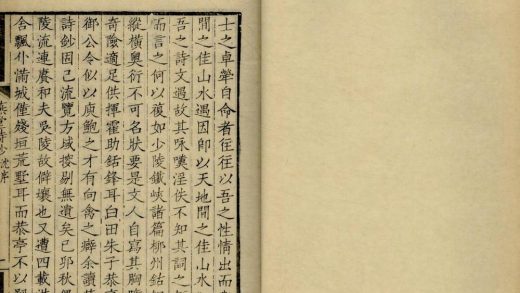 士之卓犖自命者往往以吾之性情出而
間之佳山水遇因卽以天地間之佳山水
吾之詩文遇故其咏嘆淫佚不知其詞之
而言之何以復如少陵鐵峽諸篇柳州鈷
縱橫奧衍不可名狀要是文人自寫其胸
奇險適足供揮霍助銛鋒耳白田朱子恭
御公令似以庾鮑之才有向禽之癖余讀
詩鈔固已流覽方域搜剔無遺矣已卯秋
陵流連賡和夫吳陵故僻壤也又遭四載
舍飄仆滿城僅殘垣荒墅耳而恭亭不以